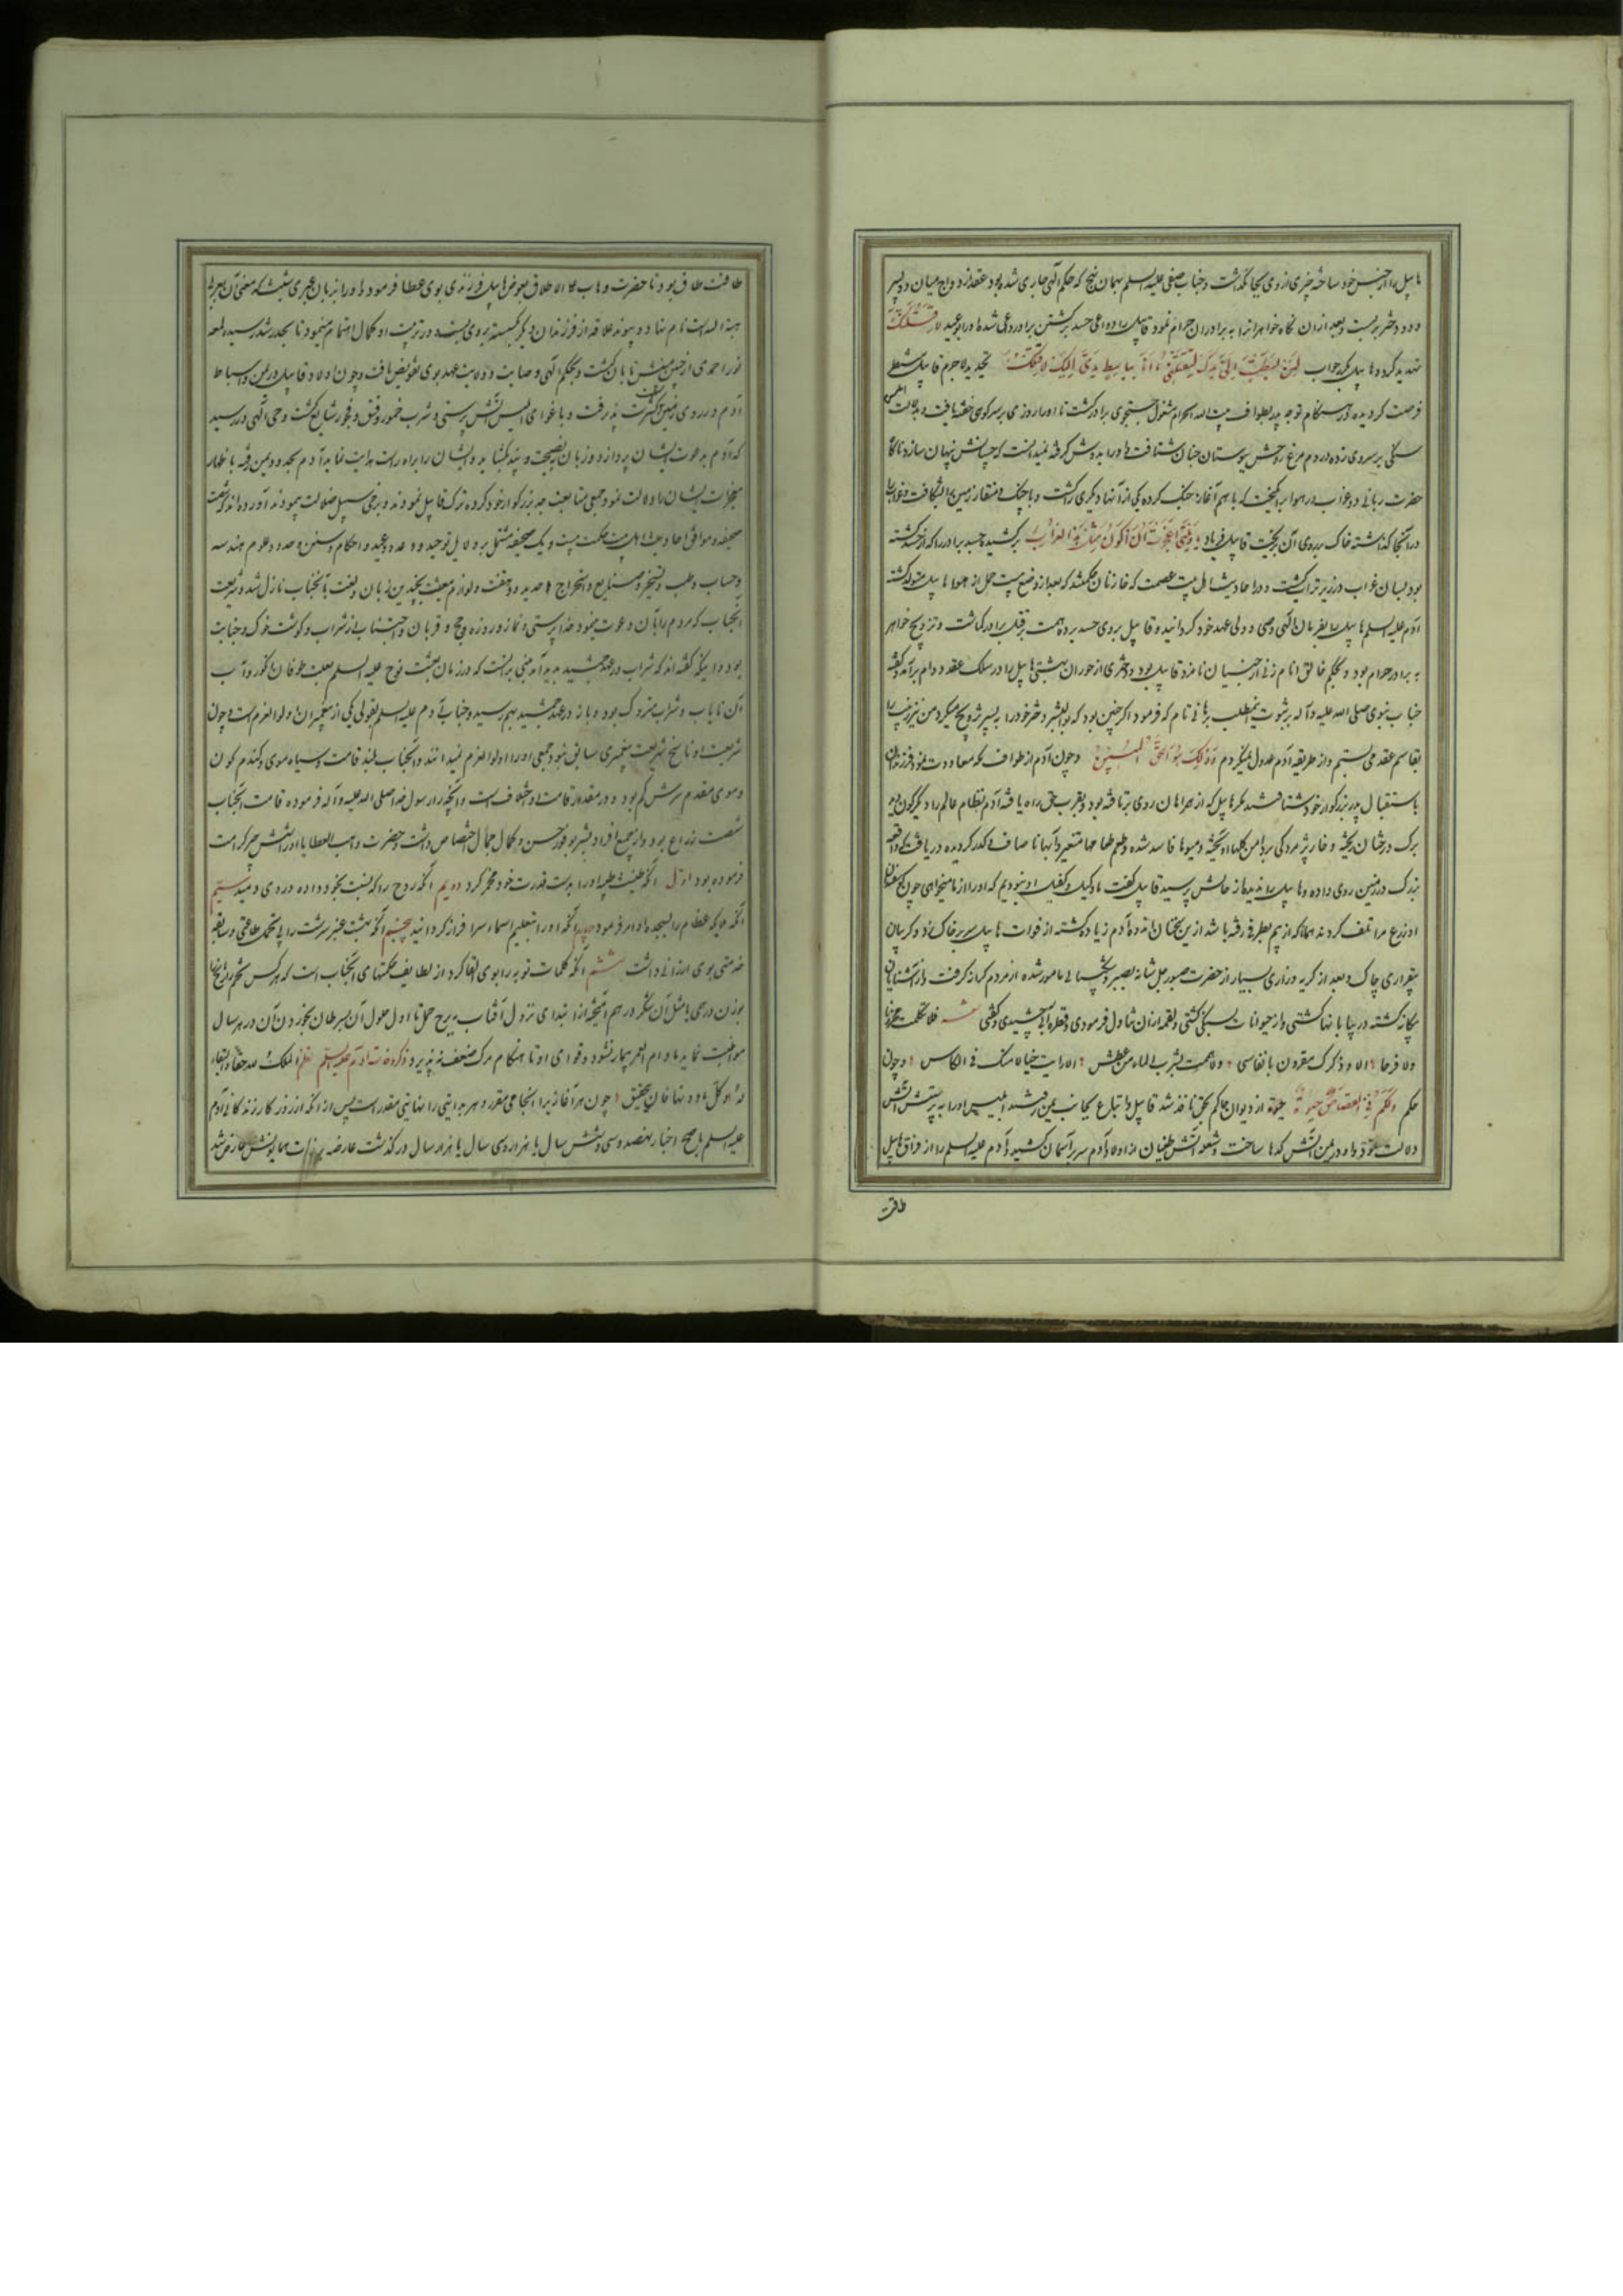 هابیل را از جنس خود ساخته چیزی از وی بجا نگذاشت و جناب صفی علیه السلم بهمان نهج که حکم الهی جاری شده بود عقد ازدواج میان دو پسر
و دو دختر بربست و بعد ازان نکاح خواهرانرا به برادران حرام نمود قابیل را دواعی حسد بر کشتن برادر داعی شده اورا بوعید لاقتلنک
تهدید کرد و هابیل که جواب لئن بسطت الی یدک لتقتلنی ما انا بباسط یدی الیک لاقتلک لاجرم قابیل
فرصت گردیده در هنگام توجه پدر بطواف بیت الله الحرام مشغول جستجوی برادر گشت تا اورا روزی بر سر کوهی خفته یافت و بدلالت ابلیس
سنگی بر سر وی زده در دم مرغ روحش ببوستان جنان شتافت و اورا بدوش گرفته نمیدانست که چسانش پنهان سازد ناگاه
حضرت ربانی دو غراب در هوا برانگیخت که با هم آغاز جنگ کرده یکی از آنها دیگری را کشت و با چنگ و منقار زمین را شکافت و غراب را
در آنجا گذاشته خاک بر روی آن ریخت قابیل فریاد یا ویلتی اعجزت ان اکون مثل هذا الغراب برکشید و جسد برادر را که از
بود بسان غراب در زیر تراب کشت و در احادیث اهل بیت عصمت که
آدم علیه السلم هابیل را بفرمان الهی وصی و ولی عهد خود گردانید و قابیل بروی حسد برده همت بر قتل برادر گماشت و تزویج خواهر
به برادر حرام بود و بحکم خالق انام زنی از جنیان نامزد قابیل بود و دختری از حوران بهشتی هابیل را در سلک عقد دوام برآمد و گفته
جناب نبوی صلی الله علیه و آله بر ثبوت این مطلب برهانی تام که فرمود اگر چنین بود که ابو البشر دختر خود را بپسر تزویج میکرد من نیز زینب را
بقاسم عقد می بستم و از طریقه آدم عدول نمیکردم و ذلک هو الحق المبین و چون آدم از طواف مکه معاودت نمود فرزندان
باستقبال پدر بزرگوار خود شتافتند مگر هابیل که از همراهان روی برتافته بود و بقرب حق راه یافته آدم نظام عالم را دیگرگون دید
برگ درختان ریخته و خار پژمردگی بدامن گلها آویخته و میوها فاسد شده و طعم طعامها متغیر و آبها ناصاف و مکدر گردیده دریافت که واقعه
بزرگ در زمین روی داده و هابیل را ندید از حالش پرسید قابیل گفت ما وکیل و کفیل او نبودیم که اورا از ما میخواهی چون
او زرع مرا تلف کردند همانا که از بیم بطرفی رفته باشد ازین سخنان اندوه آدم زیاده گشته از فوات هابیل سر بر خاک زد و گریبان
بیقراری چاک و بعد از گریه و زاری بسیار از حضرت صبور جل شانه بصبر و شکیبائی مامور شده از مردم کرانه گرفت و از آشنایان
بیگانه گشته در بیابانها گشتی و از حیوانات بسنگی کشتی و بقدر ازان تناول فرمودی و قطره آبی چشیدی و گفتی
ولا فرحا الا و ذکرک مقرون بانفاسی ولا هممت بشرب الماء من عطش الا رایت خیالا منک فی الکاس و چون
حکم ولکم فی القصاص حیوة از دیوان حاکم بحق نافذ شد قابیل و اتباع بجانب یمن رفتند ابلیس اورا به پرستش آتش
دلالت نمود و او در یمن آتش کدها ساخت و شعله آتش طغیان از اولاد آدم سر بر آسمان کشید و آدم علیه السلم را از فراق هابیل
طاقت
طاقت طاق بود تا حضرت وهاب علی الاطلاق بعوض هابیل فرزندی بوی عطا فرمود و اورا بزبان عبری شیث که معنی آن بعربی
هبة الله است نام نهاد و پیوند علاقه از فرزندان دیگر گسسته بروی بست و در تربیت او کمال اهتمام مینمود تا بحد رشد رسید و لمعه
نور احمدی از جبین مبینش تابان گشت و بحکم الهی وصایت و ولایت عهد بوی تفویض یافت و چون اولاد قابیل در یمن و اسباط
آدم در روی زمین کثرت پذیرفت و باغوای ابلیس آتش پرستی و شرب خمور و فسق و فجور شایع گشت وحی الهی در رسید
که آدم بدعوت ایشان پردازد و زبان بنصیحت و پند گشاید و ایشان را براه راست هدایت نماید آدم بحدود یمن رفته باظهار
معجزات ایشان را دلالت نمود جمعی متابعت جد بزرگوار خود کرده ترک قابیل نمودند و برخی سبیل ضلالت پیمودند آورده اند که شصت
صحیفه و موافق احادیث اهل بیت حکمت بیست و یک صحیفه مشتمل بر دلایل توحید و وعد و وعید و احکام و سنن و حدود و علوم هندسه
و حساب و طب و تسخیر و صنایع و استخراج حدید و لوازم معیشت بچندین زبان و لغت بانجناب نازل شد و شریعت
آنجناب که مردم را بآن دعوت مینمود خدا پرستی و نماز و روزه و حج و قربان و اجتناب از شراب و گوشت خوک و جنابت
بود و اینکه گفته اند که شراب در عهد جمشید پدید آمد مبنی برانست که در زمان بعثت نوح علیه السلم بعلت طوفان انگور و آب
آن نایاب و شراب متروک بود و باز در عهد جمشید بهم رسید و جناب آدم علیه السلم بقولی یکی از پیغمبران اولو العزم است و چون
شریعت او ناسخ شریعت پیغمبری سابق نبود جمعی اورا اولو العزم نمیدانند و آنجناب بلند قامت و سیاه موی و گندم گون
و موی مقدم سرش کم بود و در مقدار قامت او خلاف است و آنچه از رسول خدا صلی الله علیه و آله فرموده قامت آنجناب
شصت زراع بود و از جمیع افراد بشر بوفور حسن و کمال جمال اختصاص داشت و حضرت واهب العطایا اورا بشش چیز کرامت
فرموده بود اول آنکه طینت طیبه اورا بدست قدرت خود مخمر کرد دویم آنکه روح را که نسبت بخود داده در وی دمید سیم
آنکه ملایکه عظام را بسجده او امر فرمود چهارم آنکه اورا بتعلیم اسماء سرافراز گردانید پنجم آنکه بهشت عنبر سرشت را بی تحمل طاعتی و سابقه
خدمتی بوی ارزانی داشت ششم آنکه کلمات توبه را بوی القا کرد از لطایف حکمتهای آنجناب است که هر کس
بوزن درمی با مثل آن شکر در هم آمیخته از ابتدای نزول آفتاب ببرج حمل تا اول حلول آن بسرطان بخورد آن در هر سال
مواظبت نماید مادام العمر بیمار نشود و قوای او تا هنگام مرگ ضعف نپذیرد ذکر وفات آدم علیه السلم نظم الملک لله حقا و البقاء
له و کل ما دونها فان بتحقیق چون هر آغاز یرا انجامی مقرر و هر بدایتی را نهایتی مقدر است پس از آنکه از روزگار زندگانی آدم
علیه السلم باصح اخبار نهصد و سی و شش سال یا هزار و سی سال یا هزار سال در گذشت عارضه بر ذات همایونش عارض شد